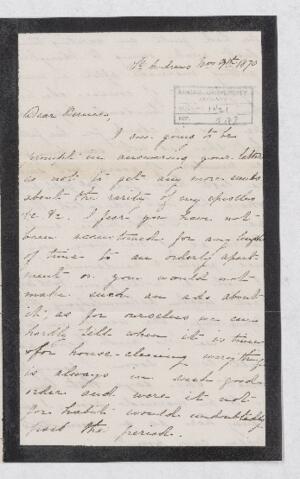 St. Andrews Nov 9th 1870
Dear
I am going to be
prompt in answering your letter
so not to get any more
about the rarity of my epistles
&c &c. I fear you have not
been accustomed for any length
of time to an orderly apart
ment or you would not
make such an ado about
it; as for ourselves we can
hardly tell when it is time
for house-cleaning everything
is always in such good
order and were it not
for habit would undoubtedly
pass the period.